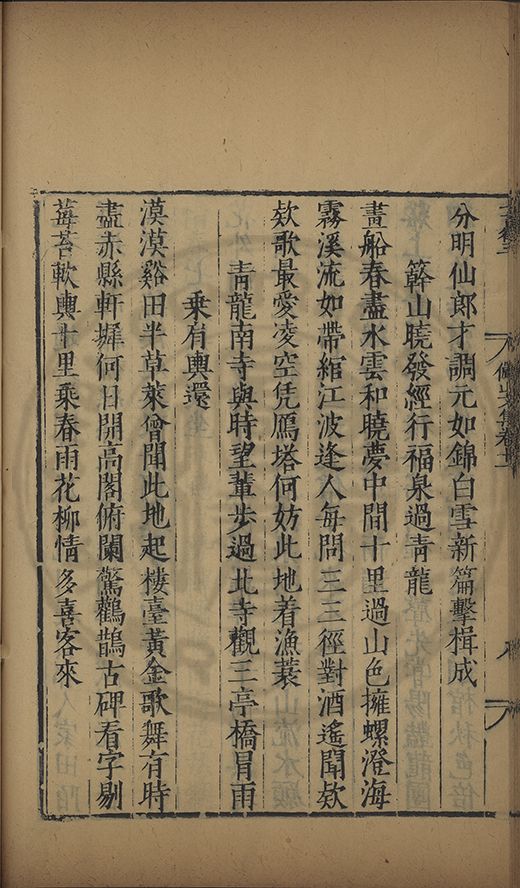 分明仙郎才調元如錦白雪新篇擊楫成
簳山曉發經行福泉過青龍
畫船春盡水雲和曉夢中間十里過山色擁螺澄海
霧溪流如帶綰江波逢人每問三三徑對酒遙聞欸
欸歌最愛凌空凭鴈塔何妨此地着漁蓑
青龍南寺與時望輩步過北寺觀三亭橋冒雨
乘有輿還
漠漠谿田半草萊曾聞此地起樓臺黃金歌舞有時
盡赤縣軒墀何日開高閣俯闌驚鸛鵲古碑看字剔
莓苔軟輿十里乘春雨花柳情多喜客來